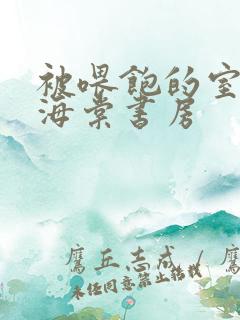 被喂饱的室
海棠书房
鹰丘志成 / 鹰
未经同意禁止转载